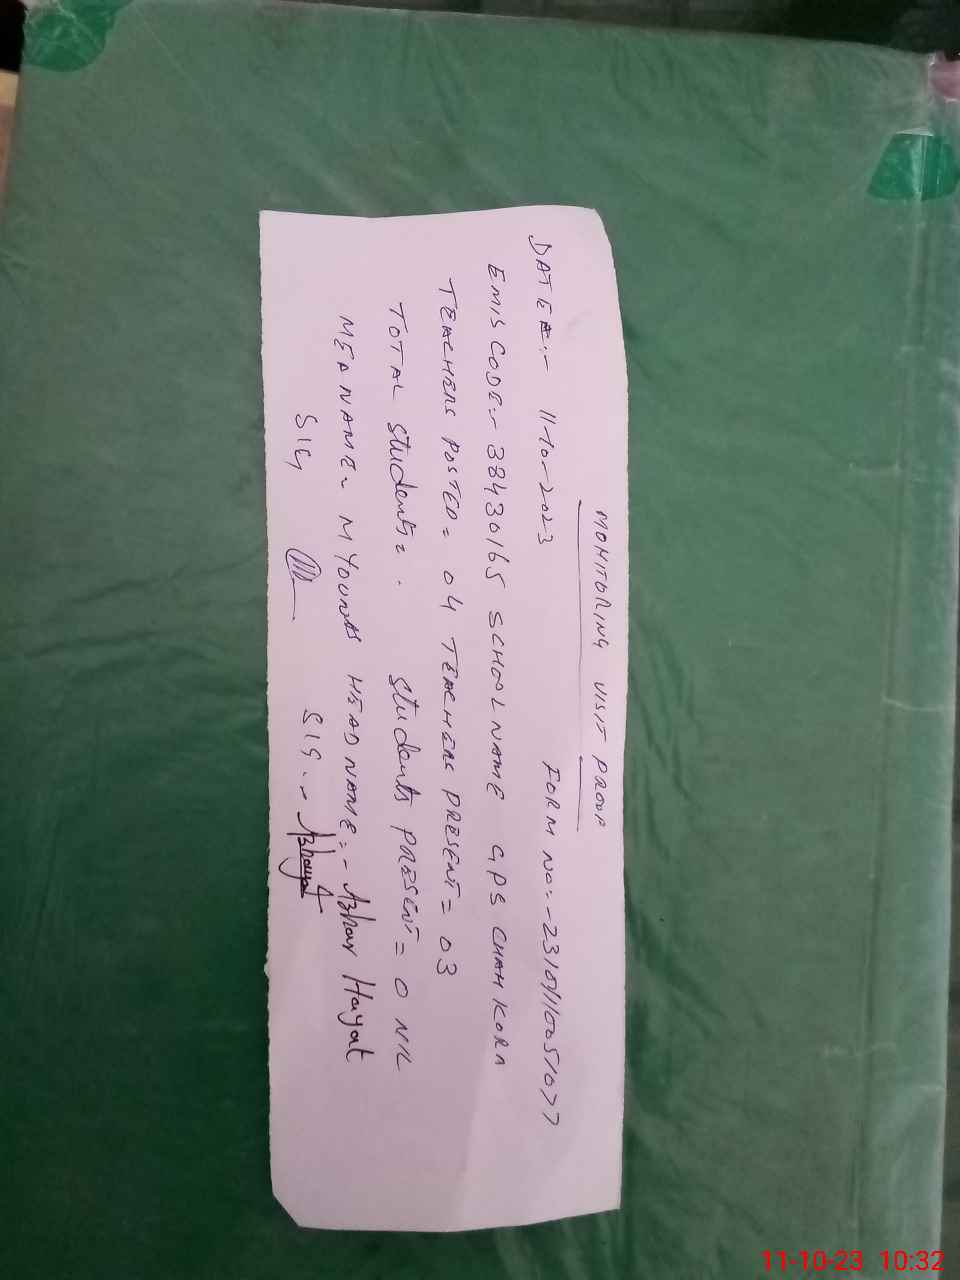 MONITORING VISIT PROOF
DATE:- 11-10-2023 FORM NO:-
EMIS CODE:- 38430165 SCHOOL NAME GPS CHAH KORA
TEACHERS POSTED = 04 TEACHERS PRESENT = 03
TOTAL Students = . Students PRESENT = 0 NIL
MEA NAME:- M YOUNAS HEAD NAME:- Azhar Hayat
SIG SIG:- Azhayat
11-10-23 10:32